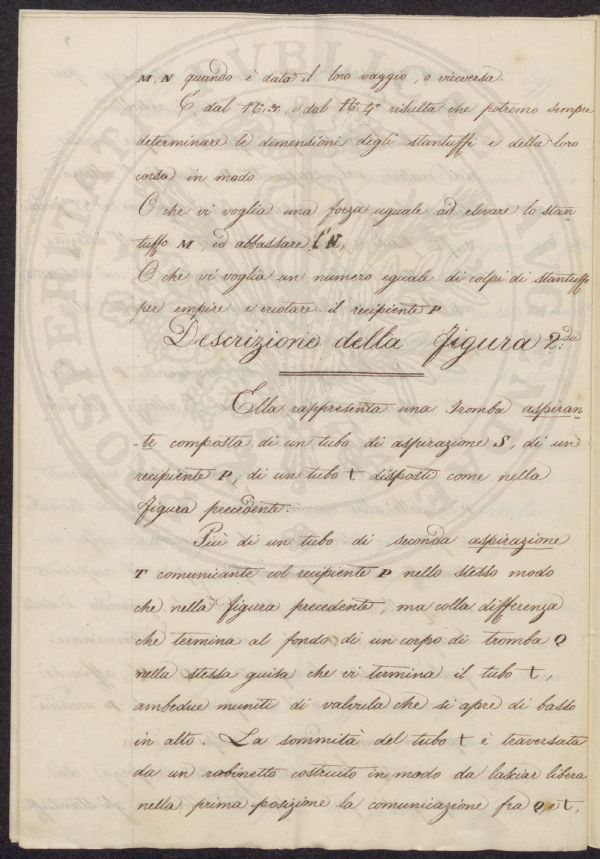 M, N quando è data il loro vaggio, o viceversa.
E dal N.º 3, e dal N.º 4º risulta che potremo sempre
determinare le dimensioni degli stantuffi e della loro
corsa in modo
O che vi voglia una forza uguale ad elevare lo stan-
tuffo M, ed abbassare l'N,
O che vi voglia un numero eguale di colpi di stantuffo
per empire e vuotare il recipiente P
Descrizione della figura 2.da
Ella rappresenta una tromba aspiran-
-te composta di un tubo di aspirazione S, di un
recipiente P, di un tubo t disposti come nella
figura precedente.
Più di un tubo di seconda aspirazione
T comunicante col recipiente P nello stesso modo
che nella figura precedente, ma colla differenza
che termina al fondo di un corpo di tromba Q
nella stessa guisa che vi termina il tubo t,
ambedue muniti di valvula che si apre di basso
in alto. La sommità del tubo t è traversata
da un robinetto costruito in modo da lasciar libera
nella prima posizione la comunicazione fra Q, e t,